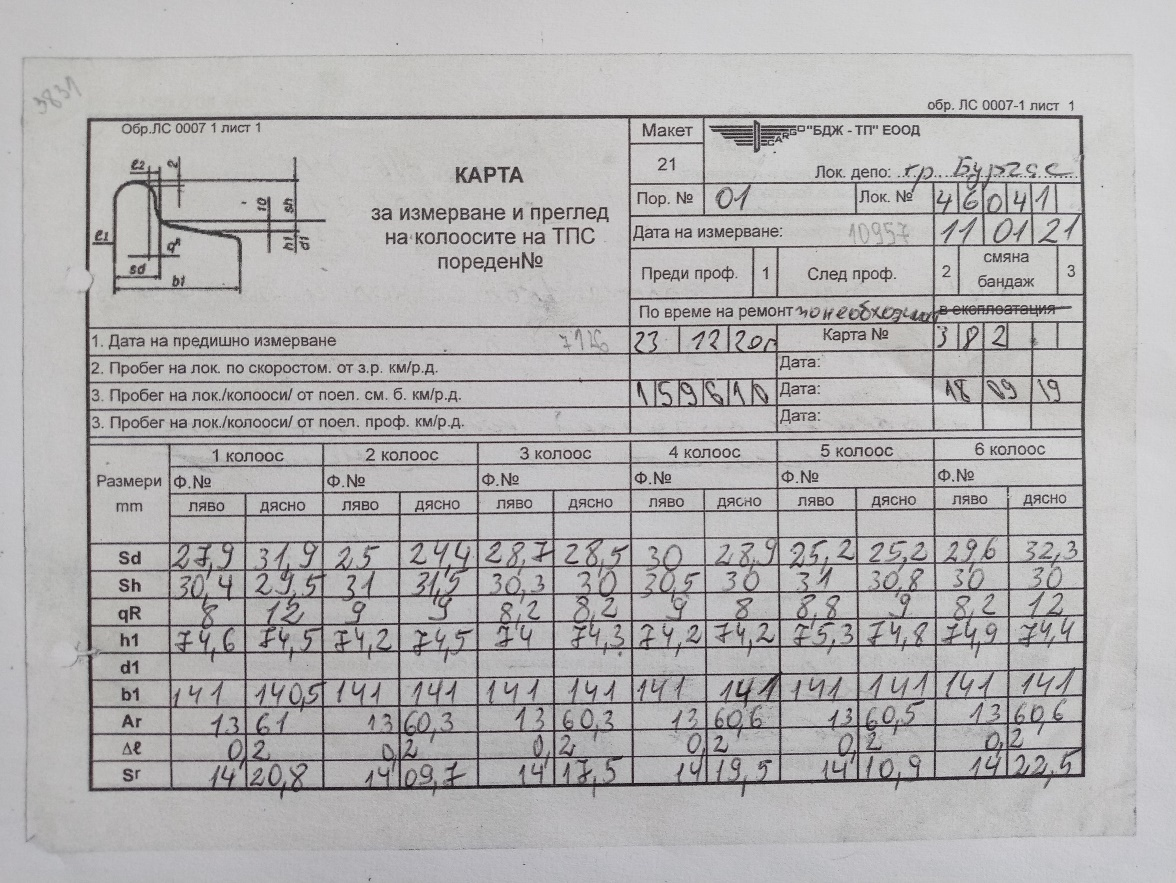 3831
обр. ЛС 0007-1 лист 1
Обр.ЛС 0007 1 лист 1
Макет
CARGO "БДЖ - ТП" ЕООД
21
Лок. депо: гр. Бургас
КАРТА
за измерване и преглед
на колоосите на ТПС
пореден№
ℓ2 2
10 sh
ℓ1 qR h1 d1
sd
b1
Пор. № 01 Лок. № 46 041
Дата на измерване: 10957 11 01 21
Преди проф. 1 След проф. 2 смяна бандаж 3
По време на ремонт по необходим. в експлоатация
1. Дата на предишно измерване 7126 23 12 20г Карта № 382
2. Пробег на лок. по скоростом. от з.р. км/р.д. Дата:
3. Пробег на лок./колооси/ от поел. см. б. км/р.д. 159610 Дата: 18 09 19
3. Пробег на лок./колооси/ от поел. проф. км/р.д. Дата:
Размери mm 1 колоос 2 колоос 3 колоос 4 колоос 5 колоос 6 колоос
Ф.№ Ф.№ Ф.№ Ф.№ Ф.№ Ф.№
ляво дясно ляво дясно ляво дясно ляво дясно ляво дясно ляво дясно
Sd 27,9 31,9 25 24,4 28,7 28,5 30 28,9 25,2 25,2 29,6 32,3
Sh 30,4 29,5 31 31,5 30,3 30 30,5 30 31 30,8 30 30
qR 8 12 9 9 8,2 8,2 9 8 8,8 9 8,2 12
h1 74,6 74,5 74,2 74,5 74 74,3 74,2 74,2 75,3 74,8 74,9 74,4
d1
b1 141 140,5 141 141 141 141 141 141 141 141 141 141
Ar 1361 1360,3 1360,3 1360,6 1360,5 1360,6
Δℓ 0,2 0,2 0,2 0,2 0,2 0,2
Sr 1420,8 1409,7 1417,5 1419,5 1410,9 1422,5